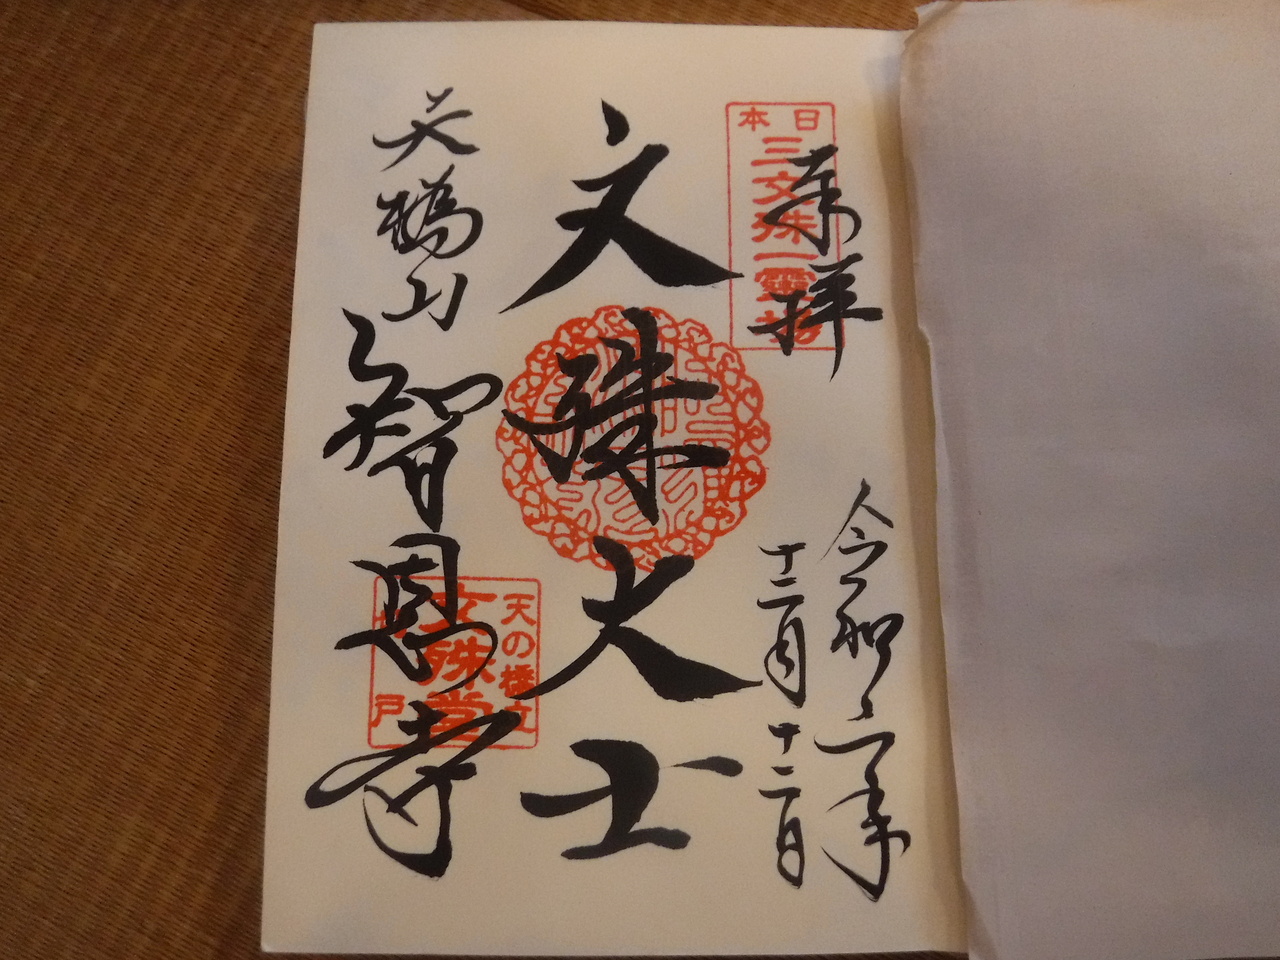 奉拝
日本
三文殊一霊場
令和六年
十二月十二日
文殊大士
天橋山
智恩寺
天の橋立
文殊堂
切戸